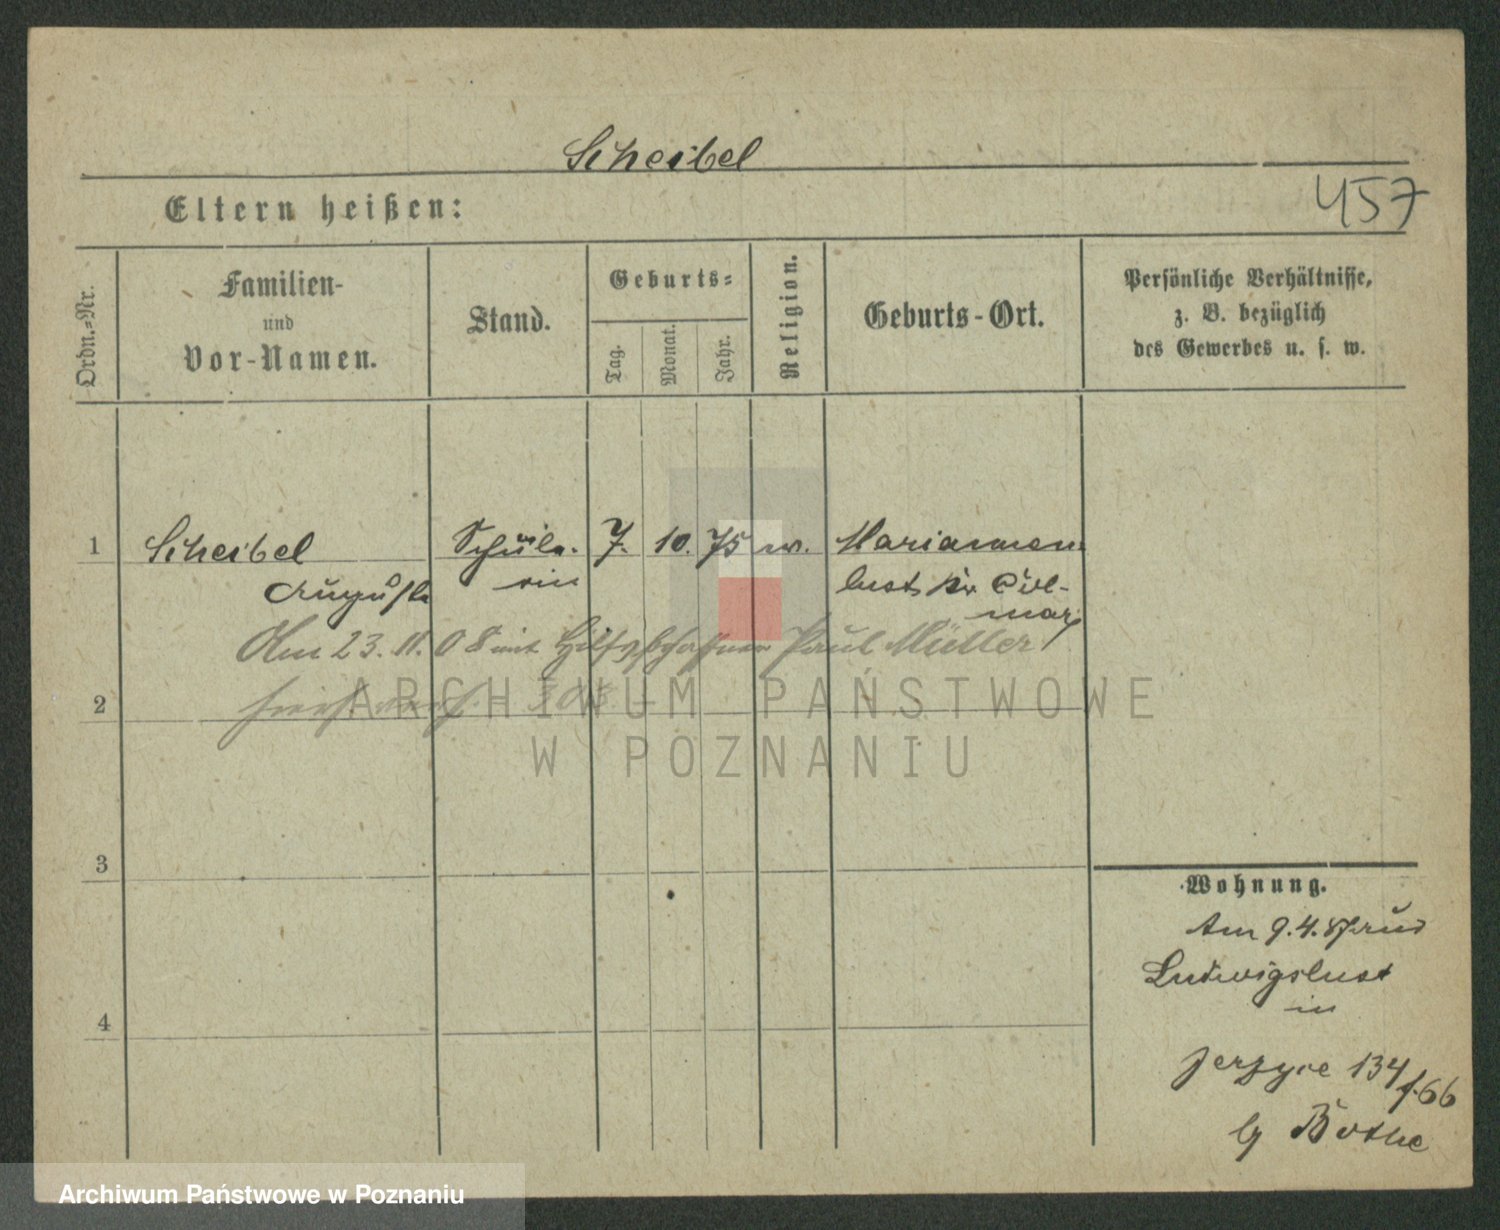 Scheibel
457
Eltern heißen:
Ordn.-Nr.
Familien-
und
Vor-Namen.
Stand.
Geburts-
Tag.
Monat.
Jahr.
Religion.
Geburts-Ort.
Persönliche Verhältnisse,
z. B. bezüglich
des Gewerbes u. s. w.
1 Scheibel Schüle- 7. 10. 75 ev. Mariannen
Auguste rin lust Kr Col-
mar
Am 23. 11. 08 mit Hilfsschaffner Paul Müller
2
ARCHIWUM PAŃSTWOWE
W POZNANIU
3
Wohnung.
Am 9.4.87 aus
Ludwigslust
in
4
Jerzyce 134/f.66
by Bothe
Archiwum Państwowe w Poznaniu